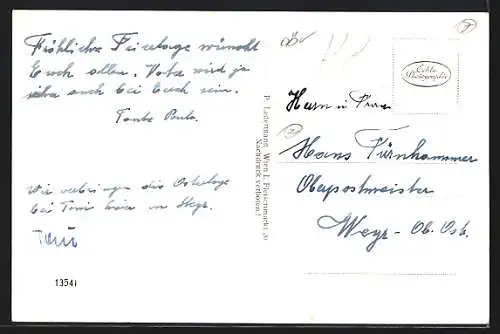 Fröhliche Feiertage wünscht
Euch allen. Vota wird ja
schon auch bei Euch sein.
Tante Paula.
Wir verbringen die Ostertage
bei Toni hier in Steyr.
13541
P. Ledermann, Wien I., Fleischmarkt 20
Nachdruck verboten!
Echte
Photographie
Herrn u Frau
Hans Fürnhammer
Oberpostmeister
Weyr - Ob. Öst.